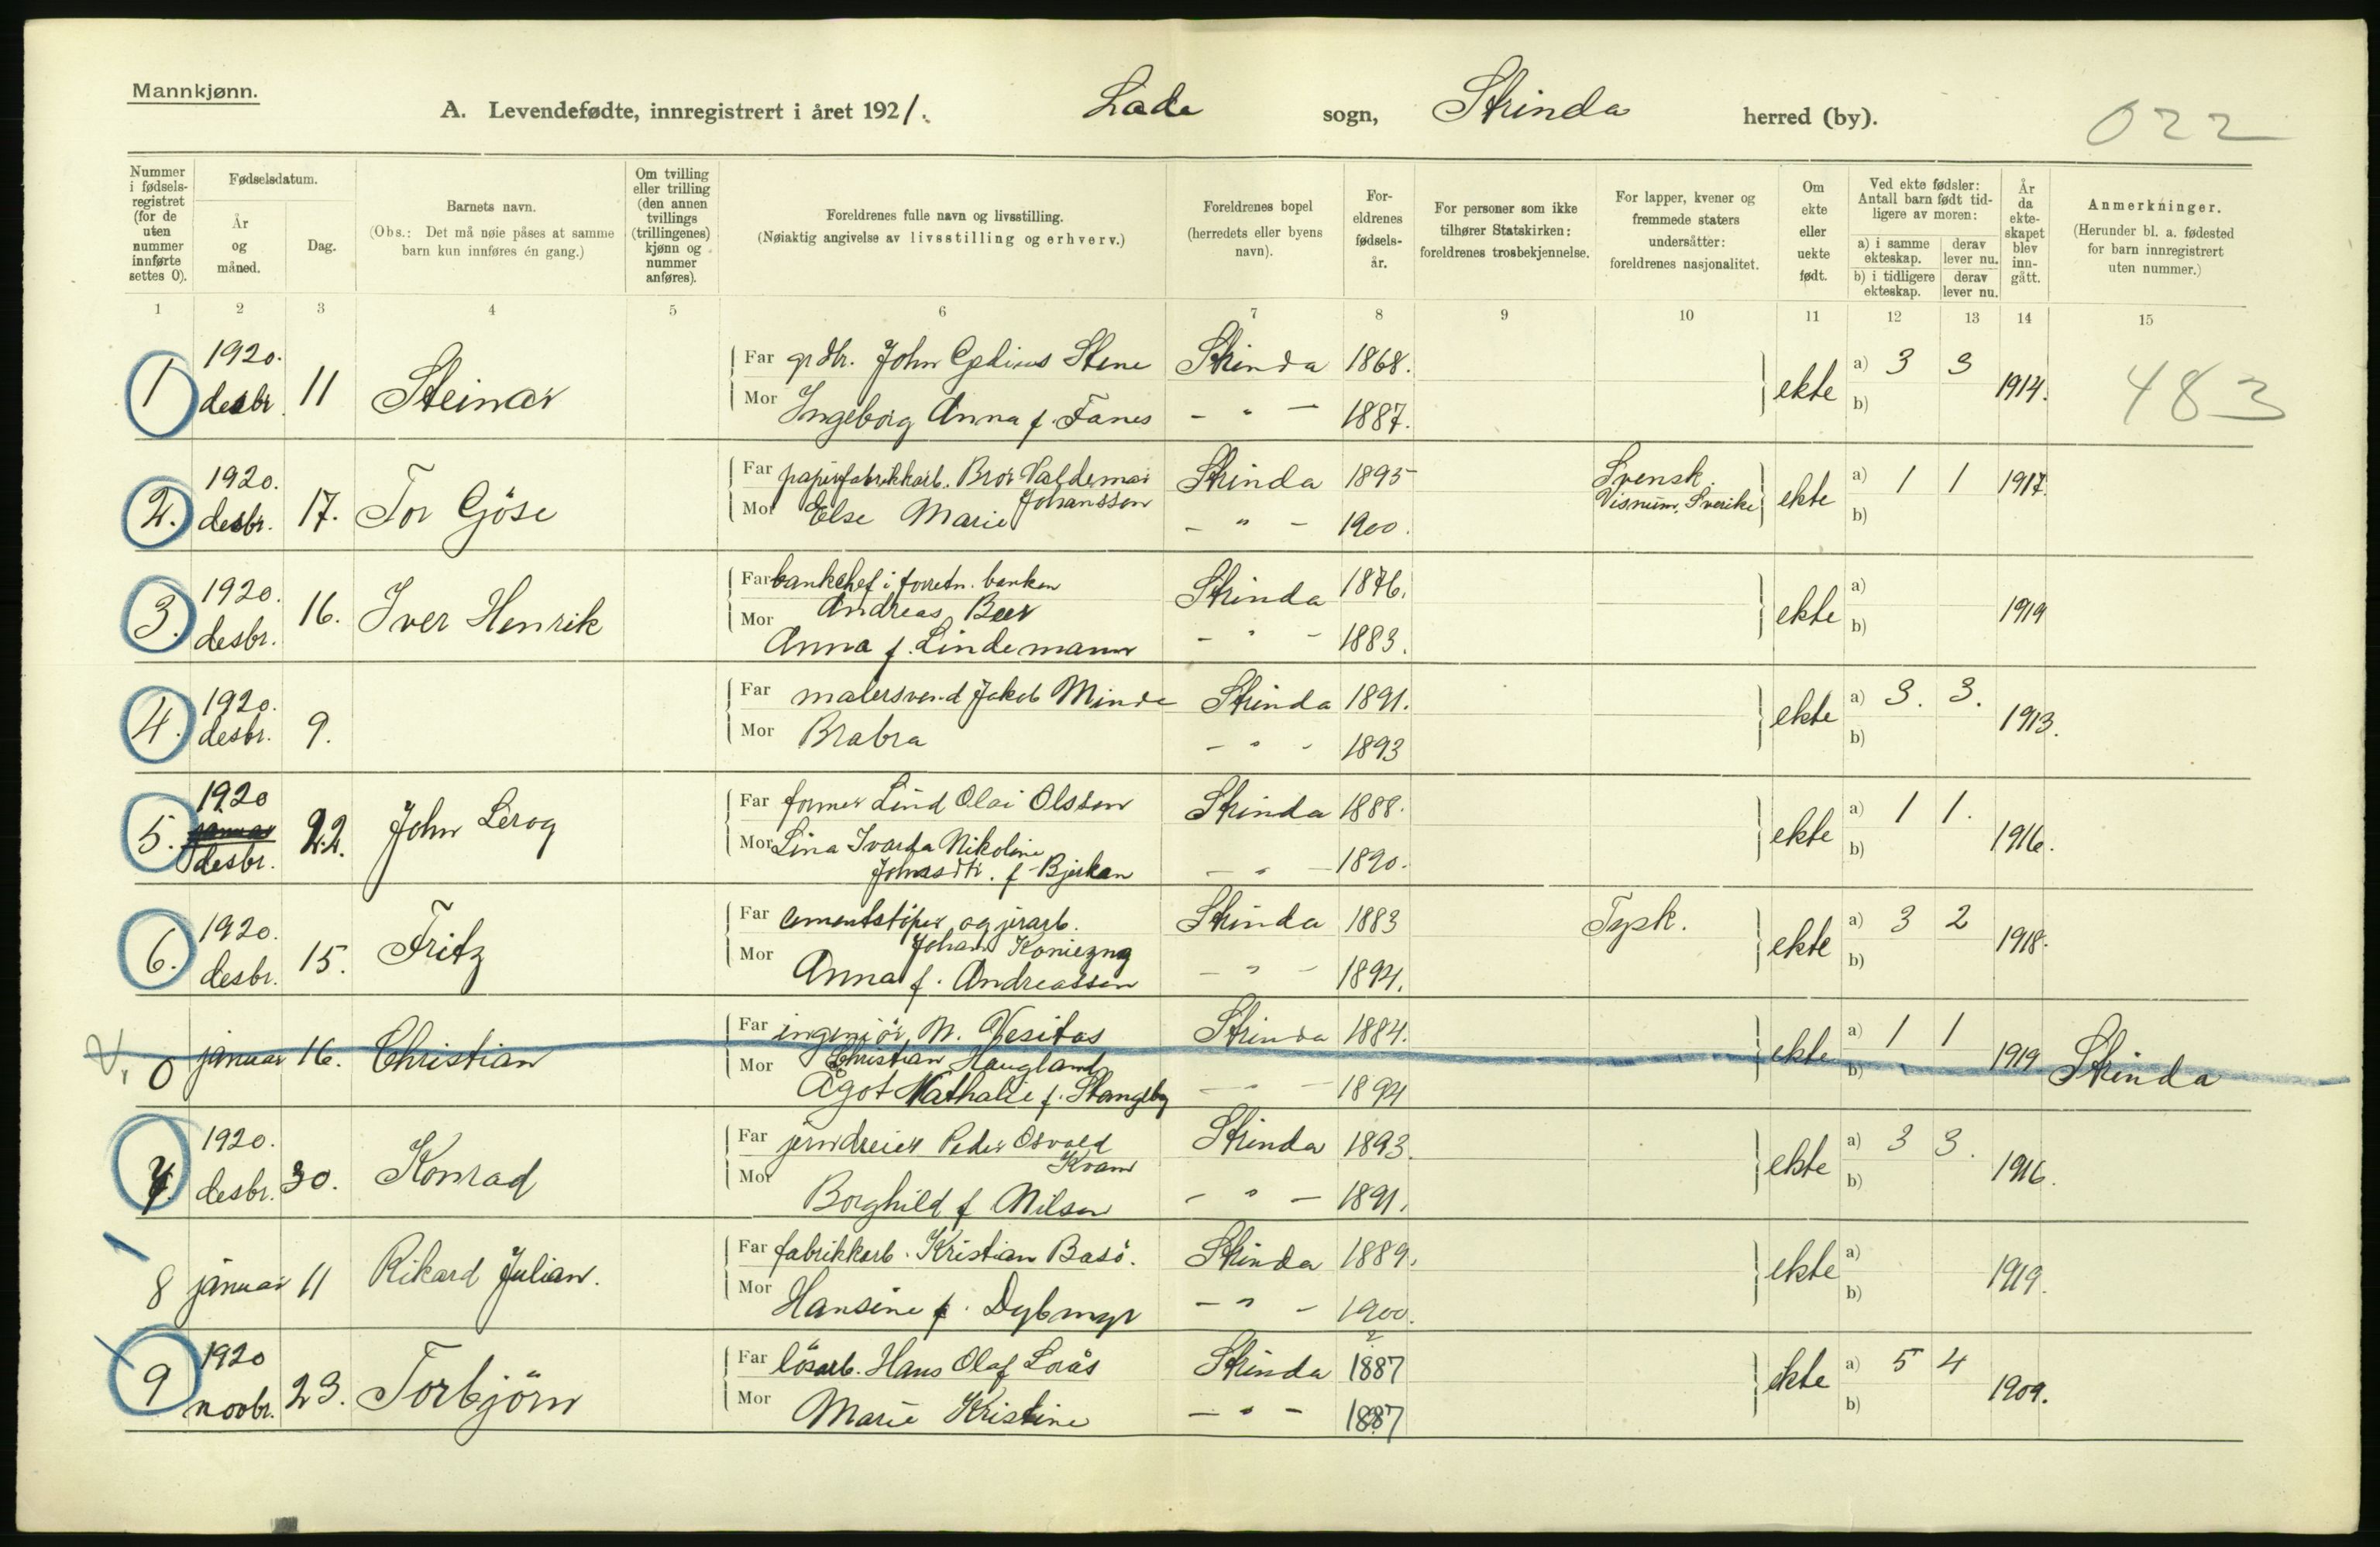 Mannkjønn.
A. Levendefødte, innregistrert i året 1921. Lade sogn, Strinda herred (by). 022
Nummer i fødsels-registret (for de uten nummer innførte settes 0).
Fødselsdatum.
År og måned.
Dag.
Barnets navn.
(Obs.: Det må nøie påses at samme barn kun innføres én gang.)
Om tvilling eller trilling (den annen tvillings (trillingenes) kjønn og nummer anføres).
Foreldrenes fulle navn og livsstilling.
(Nøiaktig angivelse av livsstilling og erhverv.)
Foreldrenes bopel (herredets eller byens navn).
For-eldrenes fødsels-år.
For personer som ikke tilhører Statskirken: foreldrenes trosbekjennelse.
For lapper, kvener og fremmede staters undersåtter: foreldrenes nasjonalitet.
Om ekte eller uekte født.
Ved ekte fødsler: Antall barn født tid-ligere av moren:
a) i samme ekteskap. derav lever nu.
b) i tidligere ekteskap. derav lever nu.
År da ekte-skapet blev inn-gått.
Anmerkninger.
(Herunder bl. a. fødested for barn innregistrert uten nummer.)
1 2 3 4 5 6 7 8 9 10 11 12 13 14 15
1 1920. desbr. 11 Steinar Far grdbr. John Stene Strinda 1868. ekte a) 3 3 1914. 483
Mor Ingeborg Anna f. Fanes - " - 1887. b)
2. 1920. desbr. 17. Tor Göse Far papirfabrikkarb. Bror Valdemar Johansson Strinda 1895 Svensk. Visnum, Sverike ekte a) 1 1 1917.
Mor Else Marie - " - 1900. b)
3. 1920. desbr. 16. Iver Henrik Far bankchef i forretn. banken Andreas Beer Strinda 1876. ekte a) 1919
Mor Anna f. Lindemann - " - 1883. b)
4. 1920. desbr. 9. Far malersvend Jakob Minde Strinda 1891. ekte a) 3. 3. 1913.
Mor Brabra - " - 1893 b)
5. 1920 januar desbr. 22. John Leroy Far former Lind Olai Olsson Strinda 1888. ekte a) 1 1. 1916.
Mor Lina Ivarda Nikoline Johnsdtr. f. Bjerkan - " - 1890. b)
6. 1920. desbr. 15. Fritz Far cementstöper og jerarb. Johan Koniezny Strinda 1883 Tysk. ekte a) 3 2 1918.
Mor Anna f. Andreassen - " - 1894. b)
0 januar 16. Christian Far ingeniör, N. Christian Haugland Strinda 1884. ekte a) 1 1 1919 Strinda
Mor Ågot Nathalie f. Stangeby - - 1894 b)
7. 1920. desbr. 30. Konrad Far jerndreier Peder Osvald Kvam Strinda 1893. ekte a) 3 3. 1916.
Mor Borghild f Nilsen - " - 1891. b)
8 januar 11 Rikard Julian. Far fabrikkarb. Kristian Basö. Strinda 1889. ekte a) 1919.
Mor Hansine f. Dybmyr - " - 1900. b)
9 1920 novbr. 23. Torbjörn Far lösarb. Hans Olaf Lorås Strinda 1887 ekte a) 5 4 1909.
Mor Marie Kristine - " - 1887 b)